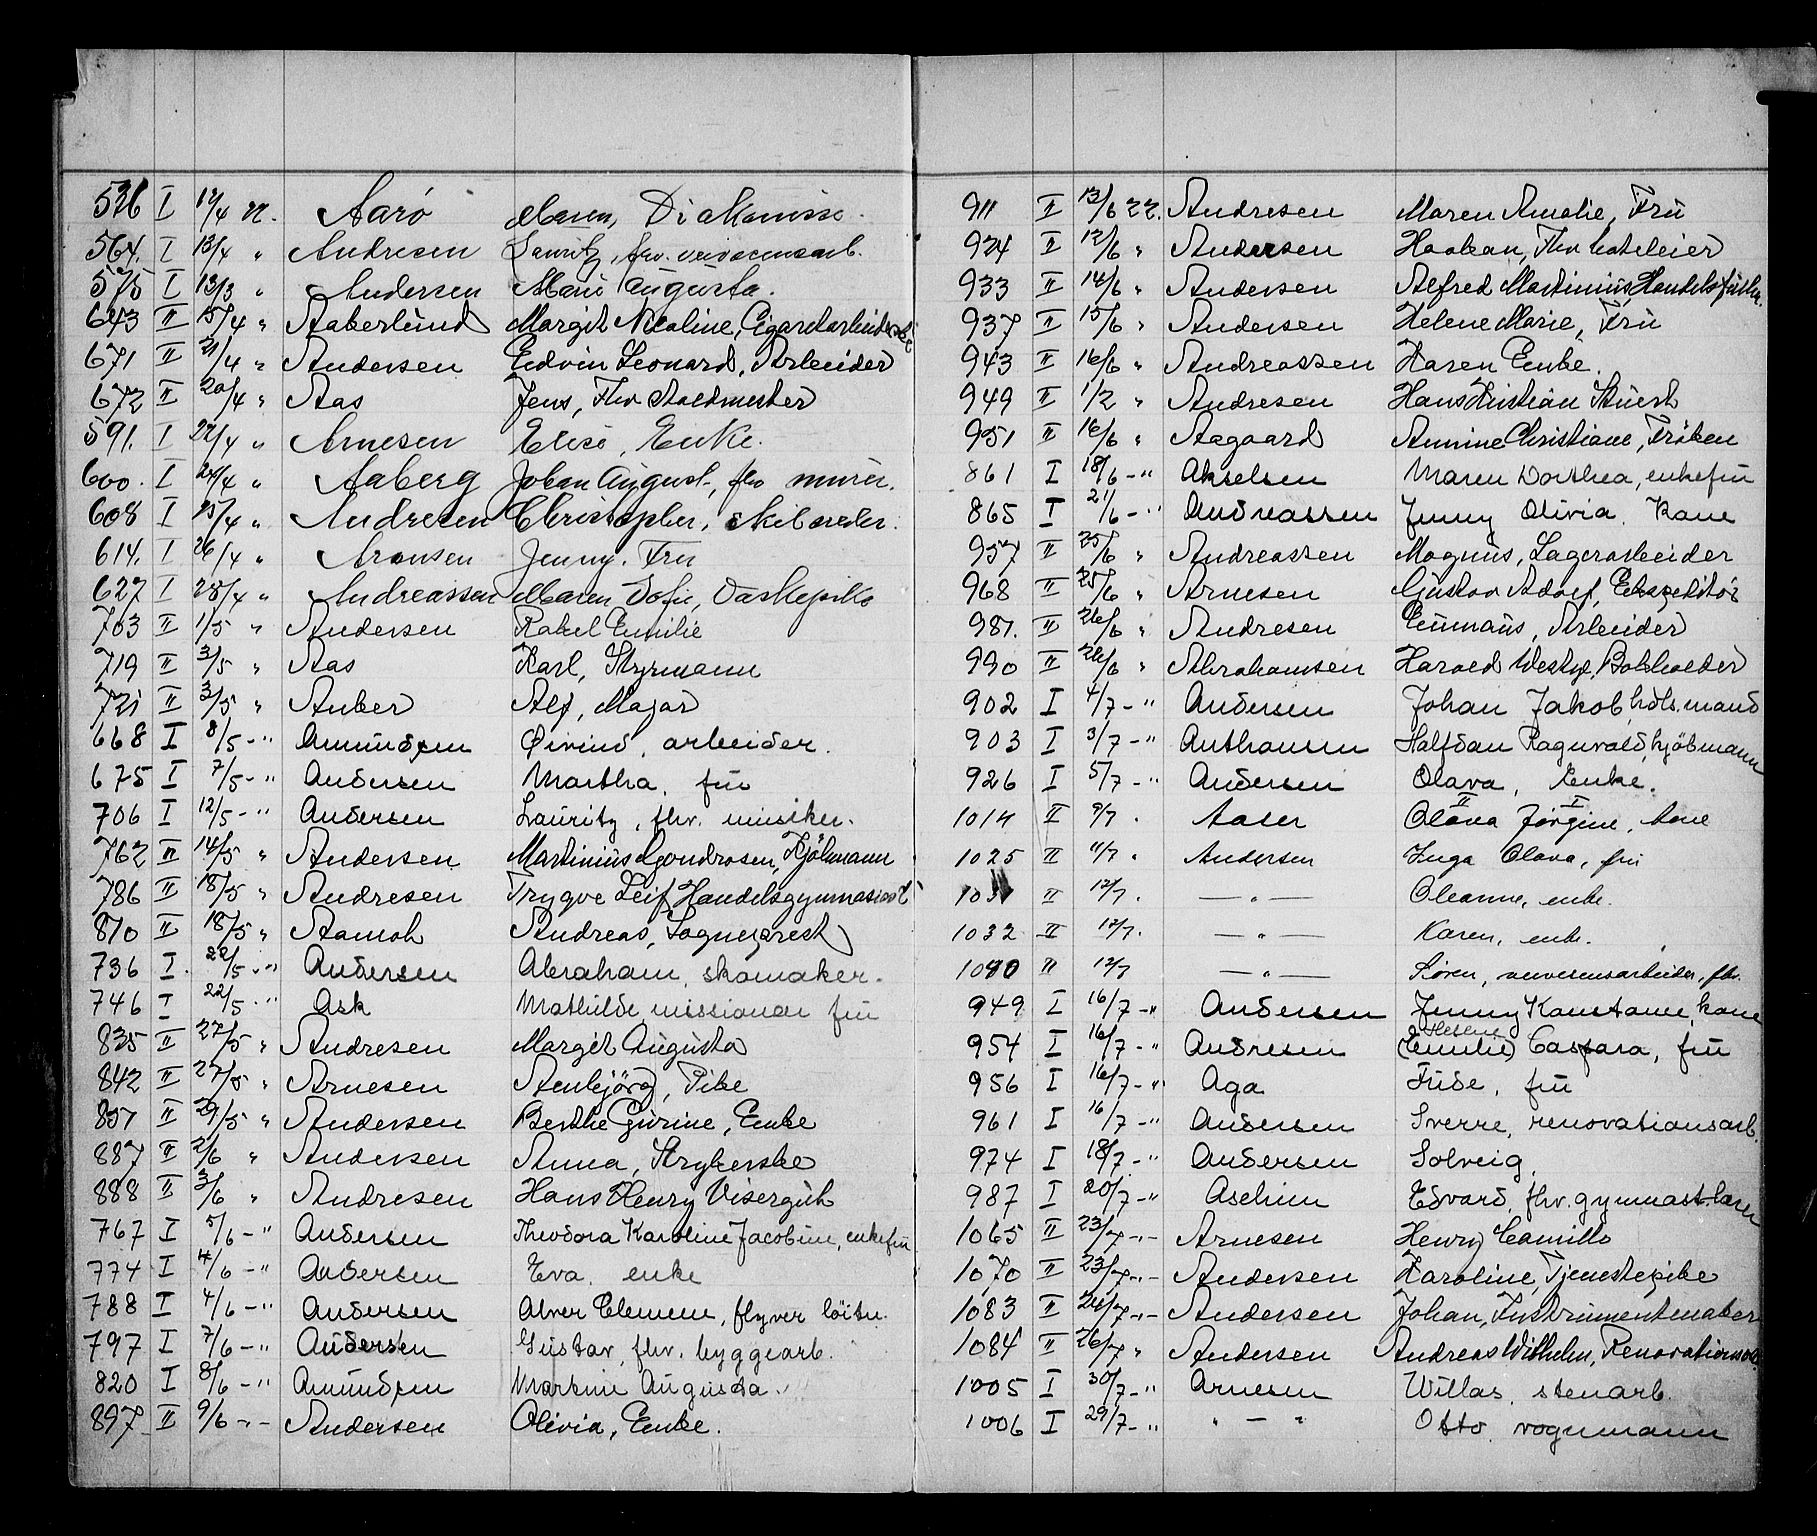 526 I 12/4 22. Aarö Maren, Diakonisse.
564. I 13/4 " Andresen Lauritz, fhv. veivæsensarb.
575 I 13/3 " Andersen Marie Augusta.
643 II 15/4 " Aaberlund Margit Nicoline, Cigaretarbeiderske
671 II 21/4 " Andersen Edvin Leonard, Arbeider
672 II 20/4 " Aas Jens, Fhv
591. I 22/4 " Arnesen Elise, Enke.
600. I 24/4 " Aaberg Johan August, fhv murer.
608 I 25/4 " Andresen Christopher, skibsreder.
614. I 26/4 " Aronsen Jenny. Fru
627 I 28/4 " Andreassen Maren Sofie, Vaskepike
703 II 1/5 " Andersen Rakel Emilie
719 II 3/5 " Aas Karl, Styrmann
721 II 3/5 " Auber Alf, Major
668 I 8/5 - " Amundsen Øivind, arbeider.
675 I 7/5 - " Andersen Martha, fru
706 I 12/5 - " Andersen Lauritz, fhv. musiker.
762 II 14/5 " Andersen Martinius Gondrosen, Kjöbmann
786 II 18/5 " Andresen Trygve Leif Handelsgymnasiast
810 II 18/5 " Aamoh Andreas, Sogneprest
736 I. 22/5 - " Andersen Abraham, skomaker.
746 I 22/5 - " Ask Mathilde missionær fru
835 II 27/5 " Andresen Margit Augusta
842 II 27/5 " Arnesen Asnbjörg, Pike
857 II 29/5 " Andersen Berthe Gurine, Enke
887 II 2/6 " Andersen Anna, Strykerske
888 II 3/6 " Andresen Hans Henry Visergut
767 I 5/6 - " Andersen Theodora Karoline Jacobine, enkefru
774 I 4/6 - " Andersen Eva. enke
788 I 4/6 - " Andersen Alver Clemens, flyver löitn.
797 I 7/6 - " Andersen Gustav, fhv. byggearb.
820 I 8/6 - " Amundsen Martine Augusta.
897 II 9/6 - " - Andersen Olivia, Enke.
911 II 13/6 22. Andresen Maren Amalie, Fru
924 II 12/6 " Andersen Haakon, Fhv hoteleier
933 II 14/6 " Andersen Alfred Martinius, Handelsfuldm.
937 II 15/6 " Andersen Helene Marie, Fru
943 II 16/6 " Andreassen Karen Enke.
949 II 1/2 " Andresen Hans Kristian Stuert
951 II 16/6 " Aagaard Annine Christiane, Fröken
861 I 18/6 - " Akselsen Maren Dorthea, enkefru
865 I 21/6 - " Andreassen Jenny Olivia. Kone
957 II 25/6 " Andreassen Magnus, Lagerarbeider
968 II 25/6 " Arnesen Gustav Adolf, Ekspeditör
981. II 26/6 " Andresen Emmaus, Arbeider
990 II 26/6 " Abrahamsen Harald Westye, Bokholder
902 I 4/7 - " Andersen Johan Jakob, hdls.mand
903 I 3/7 - " Anthonsen Halfdan Ragnvald, kjöbmann
926 I 5/7 - " Andersen Olava, Enke.
1014 II 9/7 . Aaser II Olava I Jörgine, kone
1025 II 11/7 " Andersen Inga Olava, fru
1031 II 12/7. — " — Oleanne, enke.
1032 II 12/7. — " — Karen, enke.
1040 II 12/7 — " — Sören, veivesensarbeider, fhv.
949 I 16/7 - " Andersen Jenny Konstanse, kone
954 I 16/7 - " Andresen (Emilie) Helene Caspara, fru
956 I 16/7 - " Aga Frida, fru
961 I 16/7 - " Andersen Sverre, renovationsarb.
974 I 18/7 - " Andersen Solveig.
987 I 20/7 - " Aschim Edvard, fhv. gymnast.lærer
1065 II 23/7 - " - Arnesen Henry Camillo
1070 II 23/7 - " - Andersen Karoline, Tjenestepike
1083 II 24/7 - " - Andersen Johan, Instrumentmaker
1084 II 26/7 " Andersen Andreas Wilhelm, Renovationsarb.
1005 I 30/7 - " Arnesen Willas, stenarb.
1006 I 29/7 - " " — " Otto vognmann